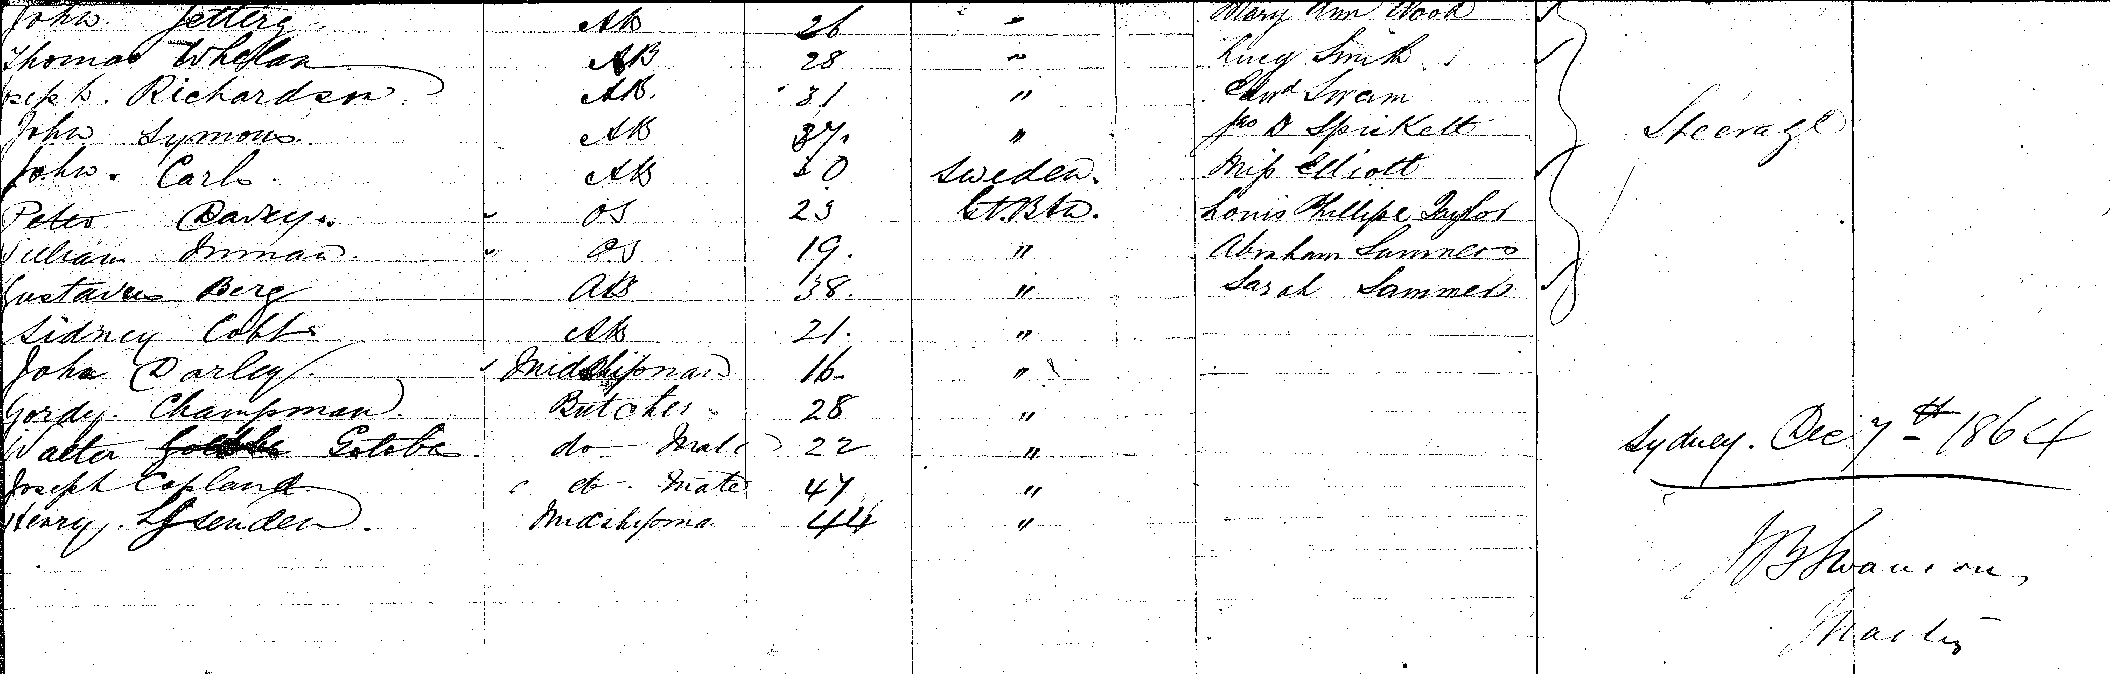 John Jettery AB 26 " Mary Ann Nook
Thomas Whelan AB 28 " Lucy Smith
Joseph. Richardson AB. 31 " Edwd Swain
John Symons AB 37. " Jno D Sprikett
John. Carls AB 30 Sweden. Miss Elliott
Peter Davey. OS 23 Gt. Btn. Louis Phillipe Taylor
William Inman. OS 19. " Abraham Summers
Gustavus Berg AB 38. " Sarah Summers
Sidney Cobbs AB 21. "
John Darley. Midshipman 16 "
Gordy. Champman. Butcher 28 "
Walter Golobe do Mate 22 "
Joseph Copland do. Mate 47 "
Henry. Midshipma 44 "
Steerage
Sydney. Dec 7th 1864
JB Swanson,
Master